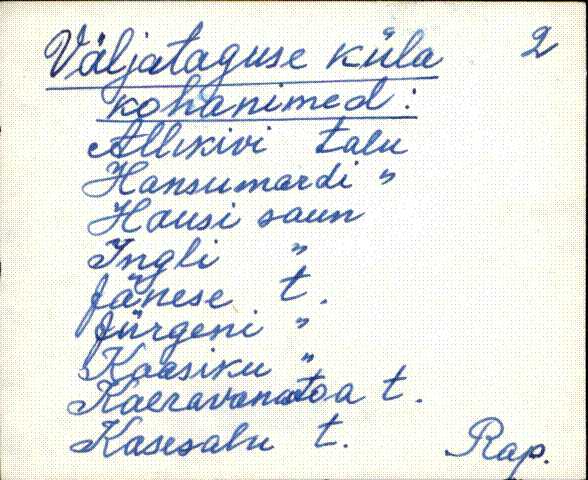 Väljataguse küla 2
kohanimed:
Allikivi talu
Hansumardi "
Hausi saun
Ingli "
Jänese t.
Jürgeni "
Kaasiku "
Kaeravanatoa t.
Kasesalu t. Rap.